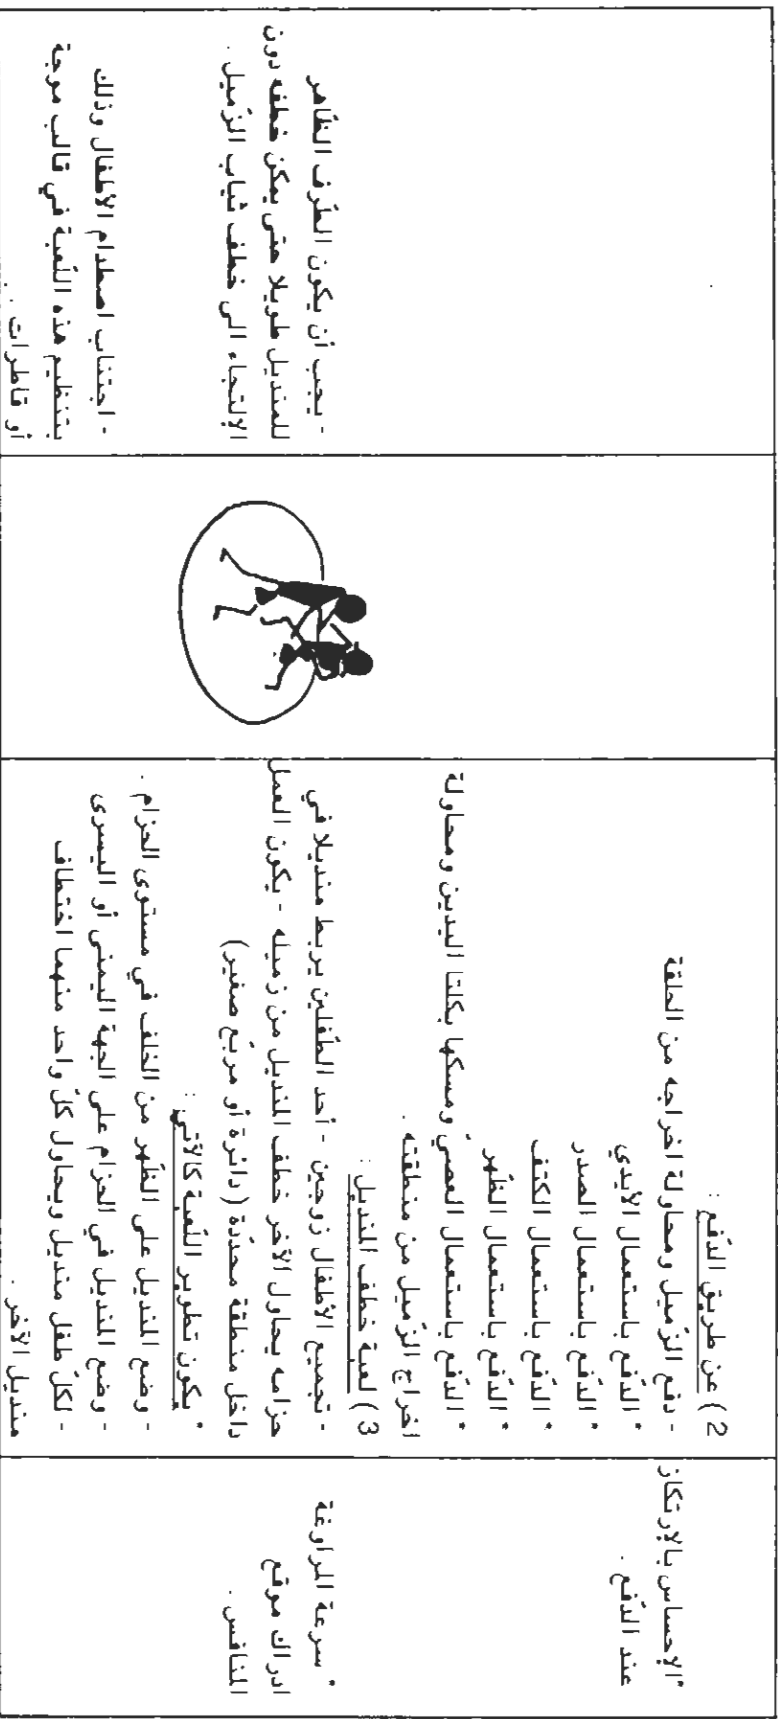 *الإحساس بالإرتكاز
عند الدّفع .
* سرعة المراوغة
ادراك موقع
المنافس .
2) عن طريق الدّفع :
- دفع الزّميل ومحاولة اخراجه من الحلقة
* الدّفع باستعمال الأيدي
* الدّفع باستعمال الصدر
* الدّفع باستعمال الكتف
* الدّفع باستعمال الظّهر
* الدّفع باستعمال العصيّ ومسكها بكلتا اليدين ومحاولة
اخراج الزّميل من منطقته .
3) لعبة خطف المنديل :
- تجميع الأطفال زوجين - أحد الطّفلين يربط منديلا في
حزامه يحاول الآخر خطف المنديل من زميله - يكون العمل
داخل منطقة محدّدة (دائرة أو مربّع صغير)
* يكون تطوير اللّعبة كالآتي :
- وضع المنديل على الظّهر من الخلف في مستوى الحزام .
- وضع المنديل في الحزام على الجهة اليمنى أو اليسرى
- لكلّ طفل منديل ويحاول كلّ واحد منهما اختطاف
منديل الآخر .
- يجب أن يكون الطّرف الظّاهر
للمنديل طويلا حتى يمكن خطفه دون
الإلتجاء الى خطف ثياب الزّميل .
- اجتناب اصطدام الأطفال وذلك
بتنظيم هذه اللّعبة في قالب موجة
أو قاطرات .